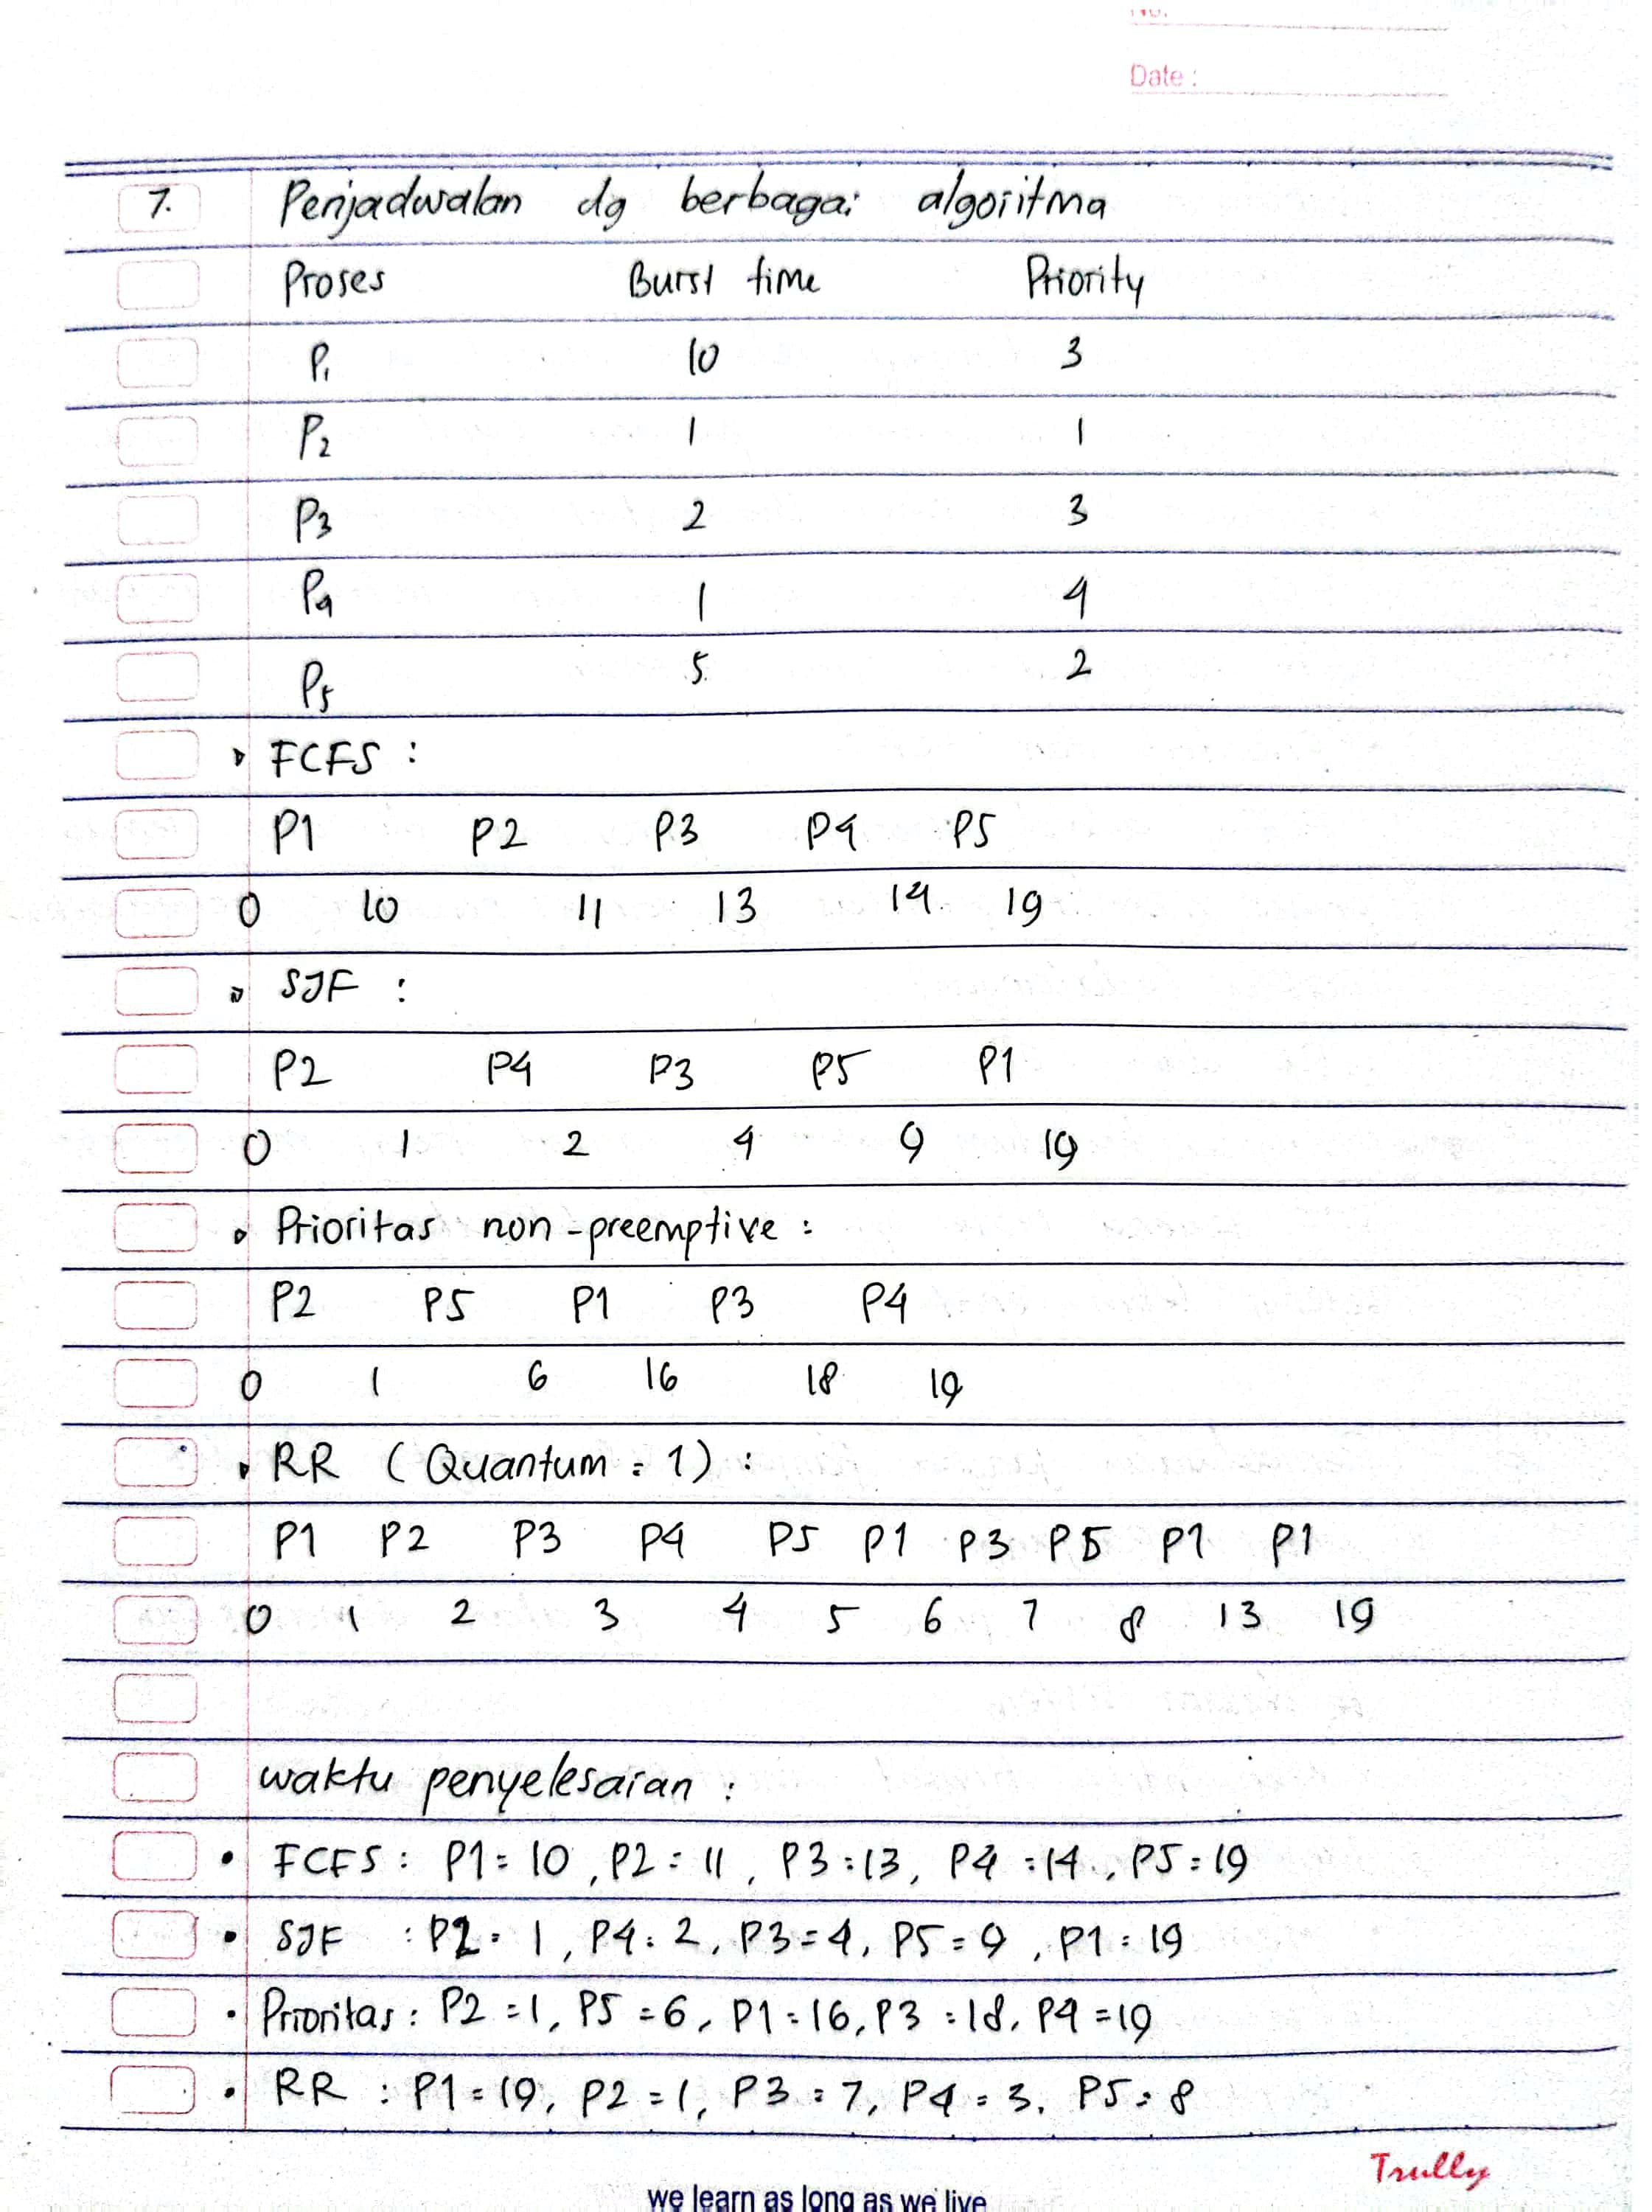 No.
Date :
7. Penjadwalan dg berbagai algoritma
Proses Burst time Priority
P1 10 3
P2 1 1
P3 2 3
P4 1 4
P5 5 2
FCFS :
P1 P2 P3 P4 P5
0 10 11 13 14 19
SJF :
P2 P4 P3 P5 P1
0 1 2 4 9 19
Prioritas non-preemptive :
P2 P5 P1 P3 P4
0 1 6 16 18 19
RR (Quantum = 1) :
P1 P2 P3 P4 P5 P1 P3 P5 P1 P1
0 1 2 3 4 5 6 7 8 13 19
waktu penyelesaian :
• FCFS : P1 = 10, P2 = 11, P3 = 13, P4 = 14, P5 = 19
• SJF : P2 = 1, P4 = 2, P3 = 4, P5 = 9, P1 = 19
• Prioritas : P2 = 1, P5 = 6, P1 = 16, P3 = 18, P4 = 19
• RR : P1 = 19, P2 = 1, P3 = 7, P4 = 3, P5 = 8
Trully
we learn as long as we live